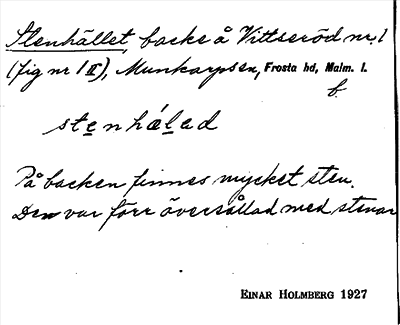 Stenhället, backe å Vittseröd nr. 1
(fig nr 1 II), Munkarpssn, Frosta hd, Malm. l.
f.
stenhæled
På backen finnes mycket sten.
Den var förr översållad med stenar
EINAR HOLMBERG 1927